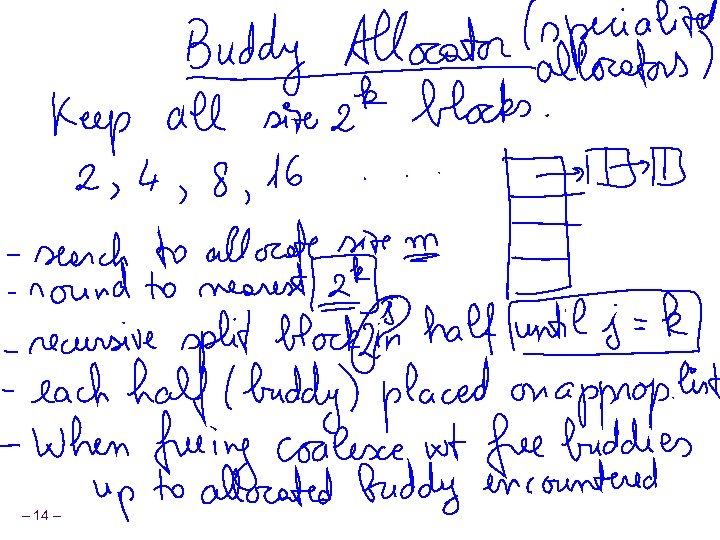 Buddy Allocator (specialized allocators)
Keep all size 2^k blocks.
2, 4, 8, 16 . . .
- search to allocate size m
- round to nearest 2^k
- recursive split block 2^j in half until j = k
- each half (buddy) placed on approp. list
- When freeing coalesce wt free buddies
up to allocated buddy encountered
– 14 –